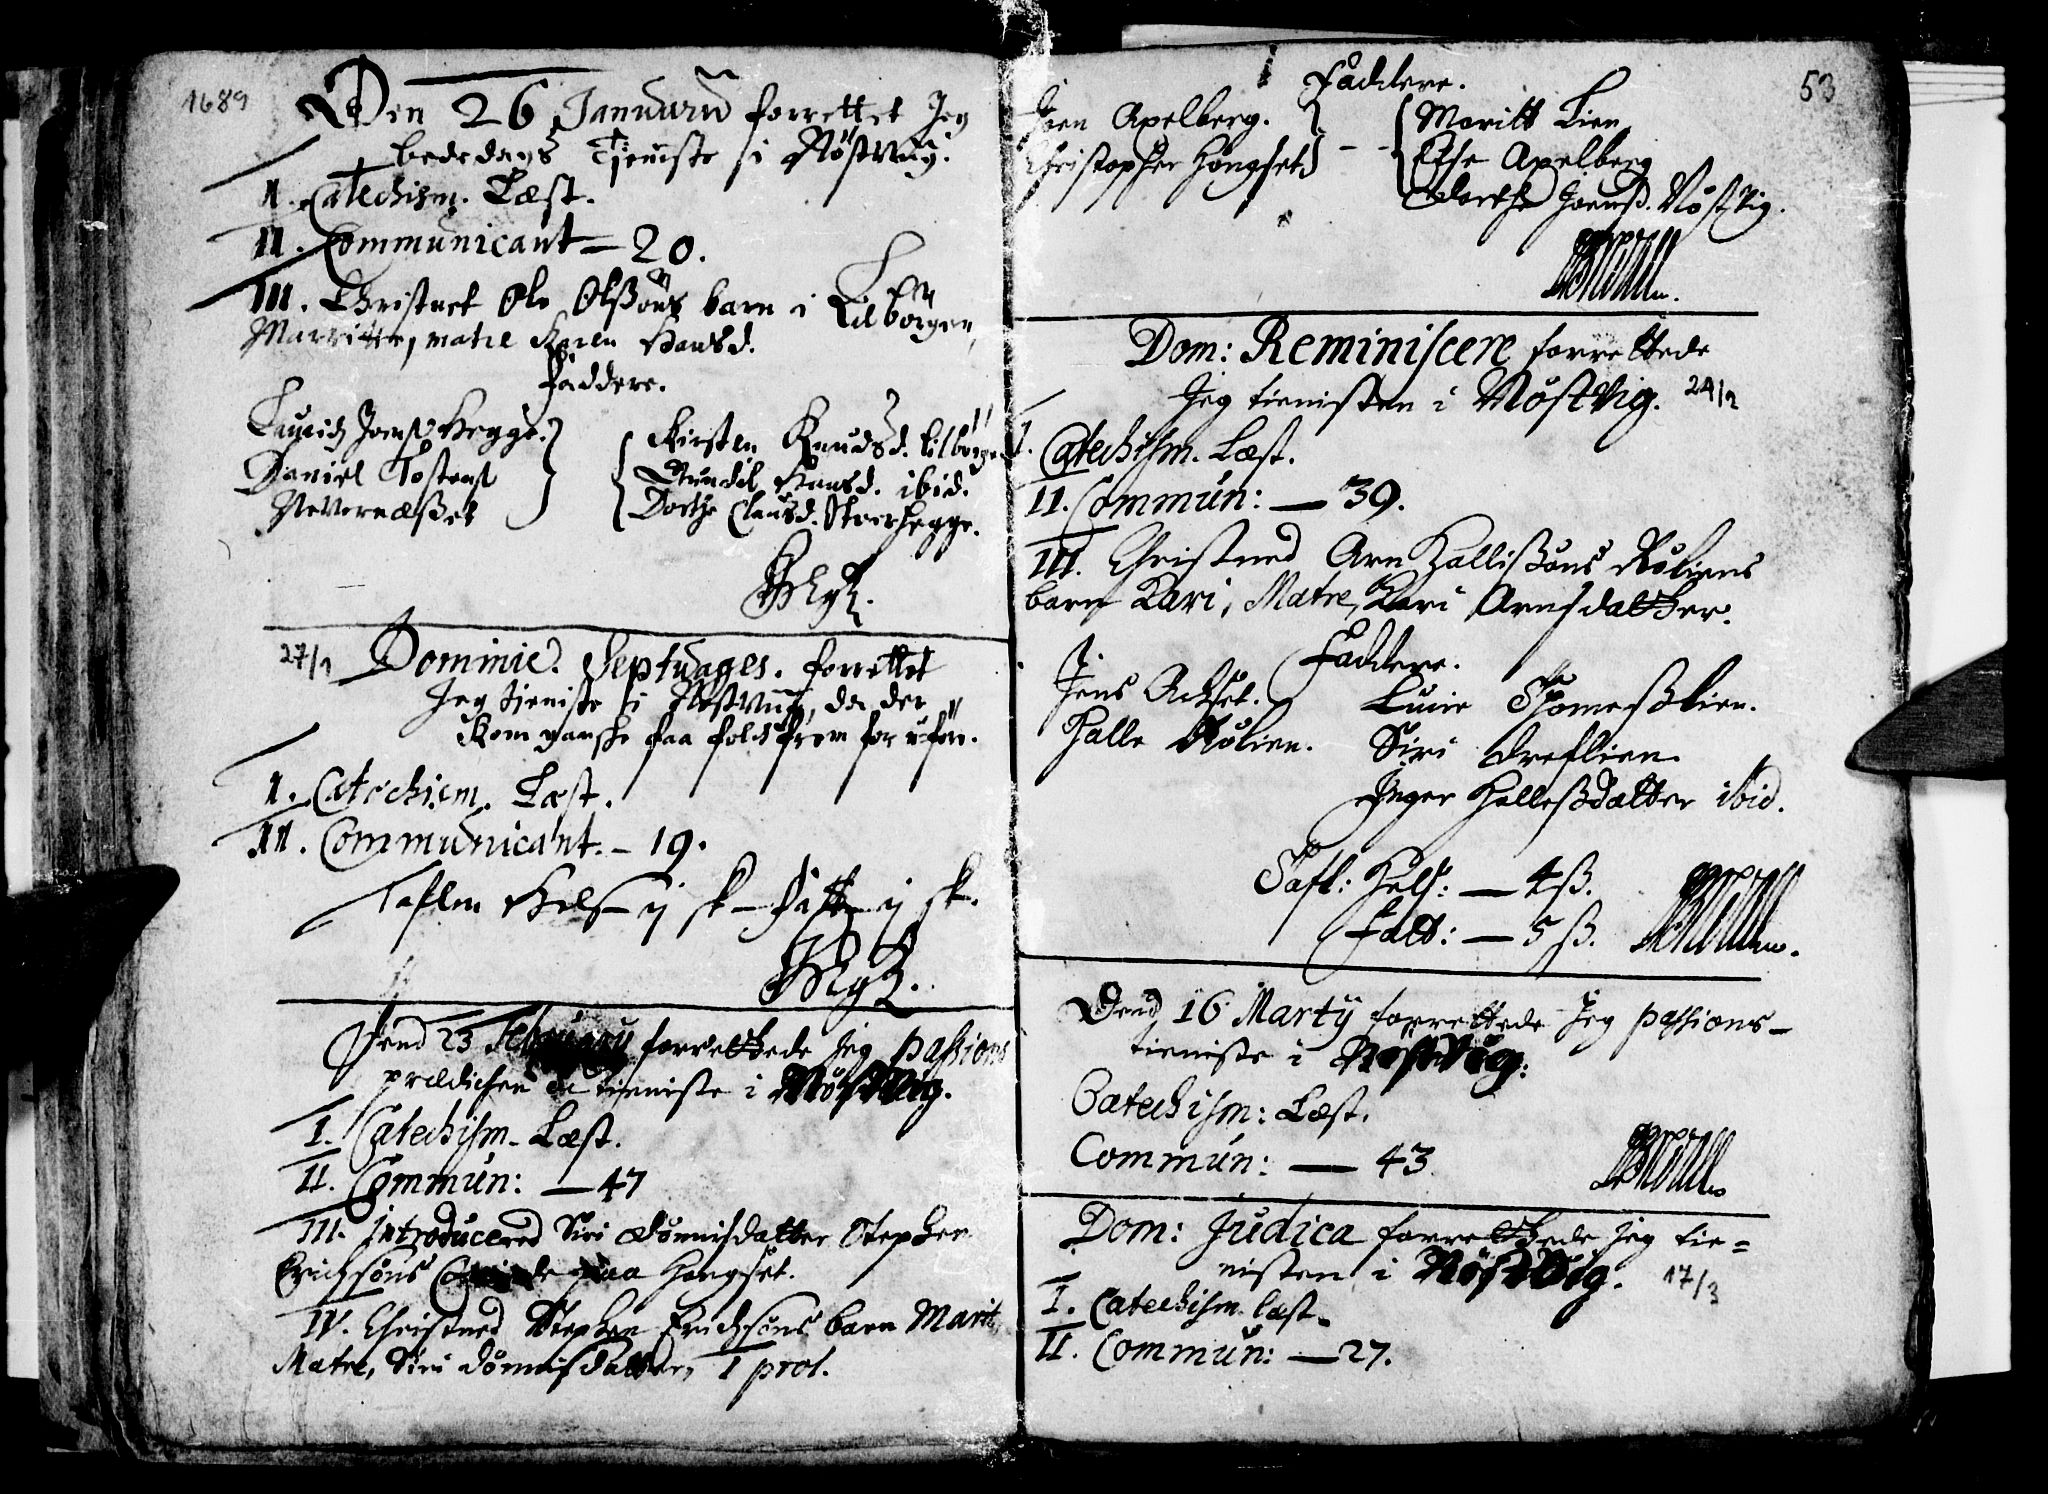 1689
Den 26 Januarii forrettet Jeg
bededags Tjeniste i Nøstvig.
I. Catechism. Læst.
II. Communicant — 20.
III. Christnet Ole Olßøns barn i Lilborgen,
Marritte, matre Karen Hansd.
Faddere.
Lauridz Joens. Hegge.
Daniel Tostens.
Nevernæßet
Kirsten Knudsd. Lilborgen
Gundil Hansd. ibid.
Dorthe Clausd. Storhegge.
27/1 Dominic. Septuages. forrettet
Jeg tjeniste i Nøstvig, da der
kom ganske faa folck frem for uføre.
I. Catechism. Læst.
II. Communicant. — 19.
Taflen Hels ij sk —
Dend 23 Februarii forrettede Jeg passions
prædichen oc tieniste i Nøstvig.
I. Catechism. Læst.
II. Commun: — 47
III. Introducered Siri Dønnisdatter Stephen
Erichsøns paa Hogset.
IV. Christned Stephen Erichsøns barn Marit,
Matre, Siri Dønnisdatter, I prol.
53
Faddere.
Joen Apelberg.
Christopher Hongset
Maritt Lien
Else Apelberg
Dorthe Joensd. Nøstvig.
Dom: Reminiscere forrettede
Jeg tienisten i Nøstvig. 24/2
I. Catechism. Læst.
II. Commun: — 39.
III. Christned Arn Hallißøns Røliens
barn Kari, Matre, Kari Arnsdatter.
Faddere.
Jens Achset.
Halle Rølien.
Lucie Thomeßlien.
Siri Dreflien.
Inger Halleßdatter ibid.
Tafl: Hels: — 4 ß.
Fatt: — 5 ß.
Dend 16 Martij forrettede Jeg passions-
tieniste i Nøstvig:
Catechism: Læst.
Commun: — 43
Dom: Judica forrettede Jeg tie=
nisten i Nøstvig. 17/3
I. Catechism. læst.
II. Commun: — 27.